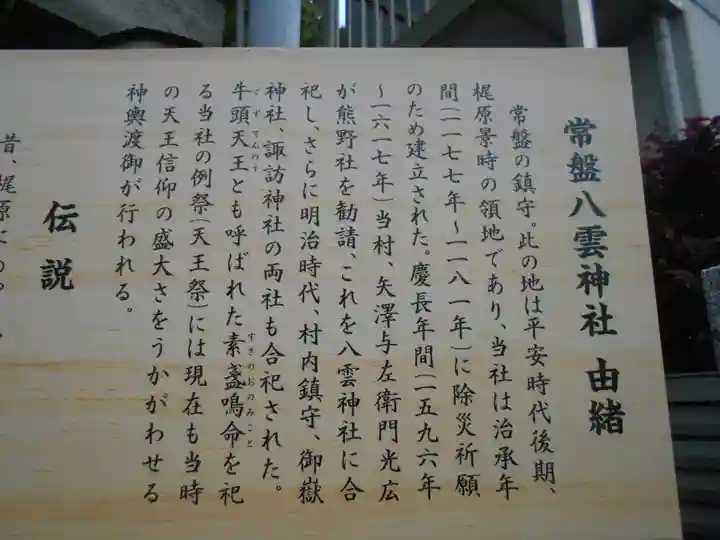 常盤八雲神社 由緒
常盤の鎮守。此の地は平安時代後期、
梶原景時の領地であり、当社は治承年
間(一一七七年~一一八一年)に除災祈願
のため建立された。慶長年間(一五九六年
~一六一七年)当村、矢澤与左衛門光広
が熊野社を勧請、これを八雲神社に合
祀し、さらに明治時代、村内鎮守、御嶽
神社、諏訪神社の両社も合祀された。
牛頭天王とも呼ばれた素盞鳴命を祀
ごずてんのう
すさのおのみこと
る当社の例祭(天王祭)には現在も当時
の天王信仰の盛大さをうかがわせる
神輿渡御が行われる。
伝説
昔、梶原